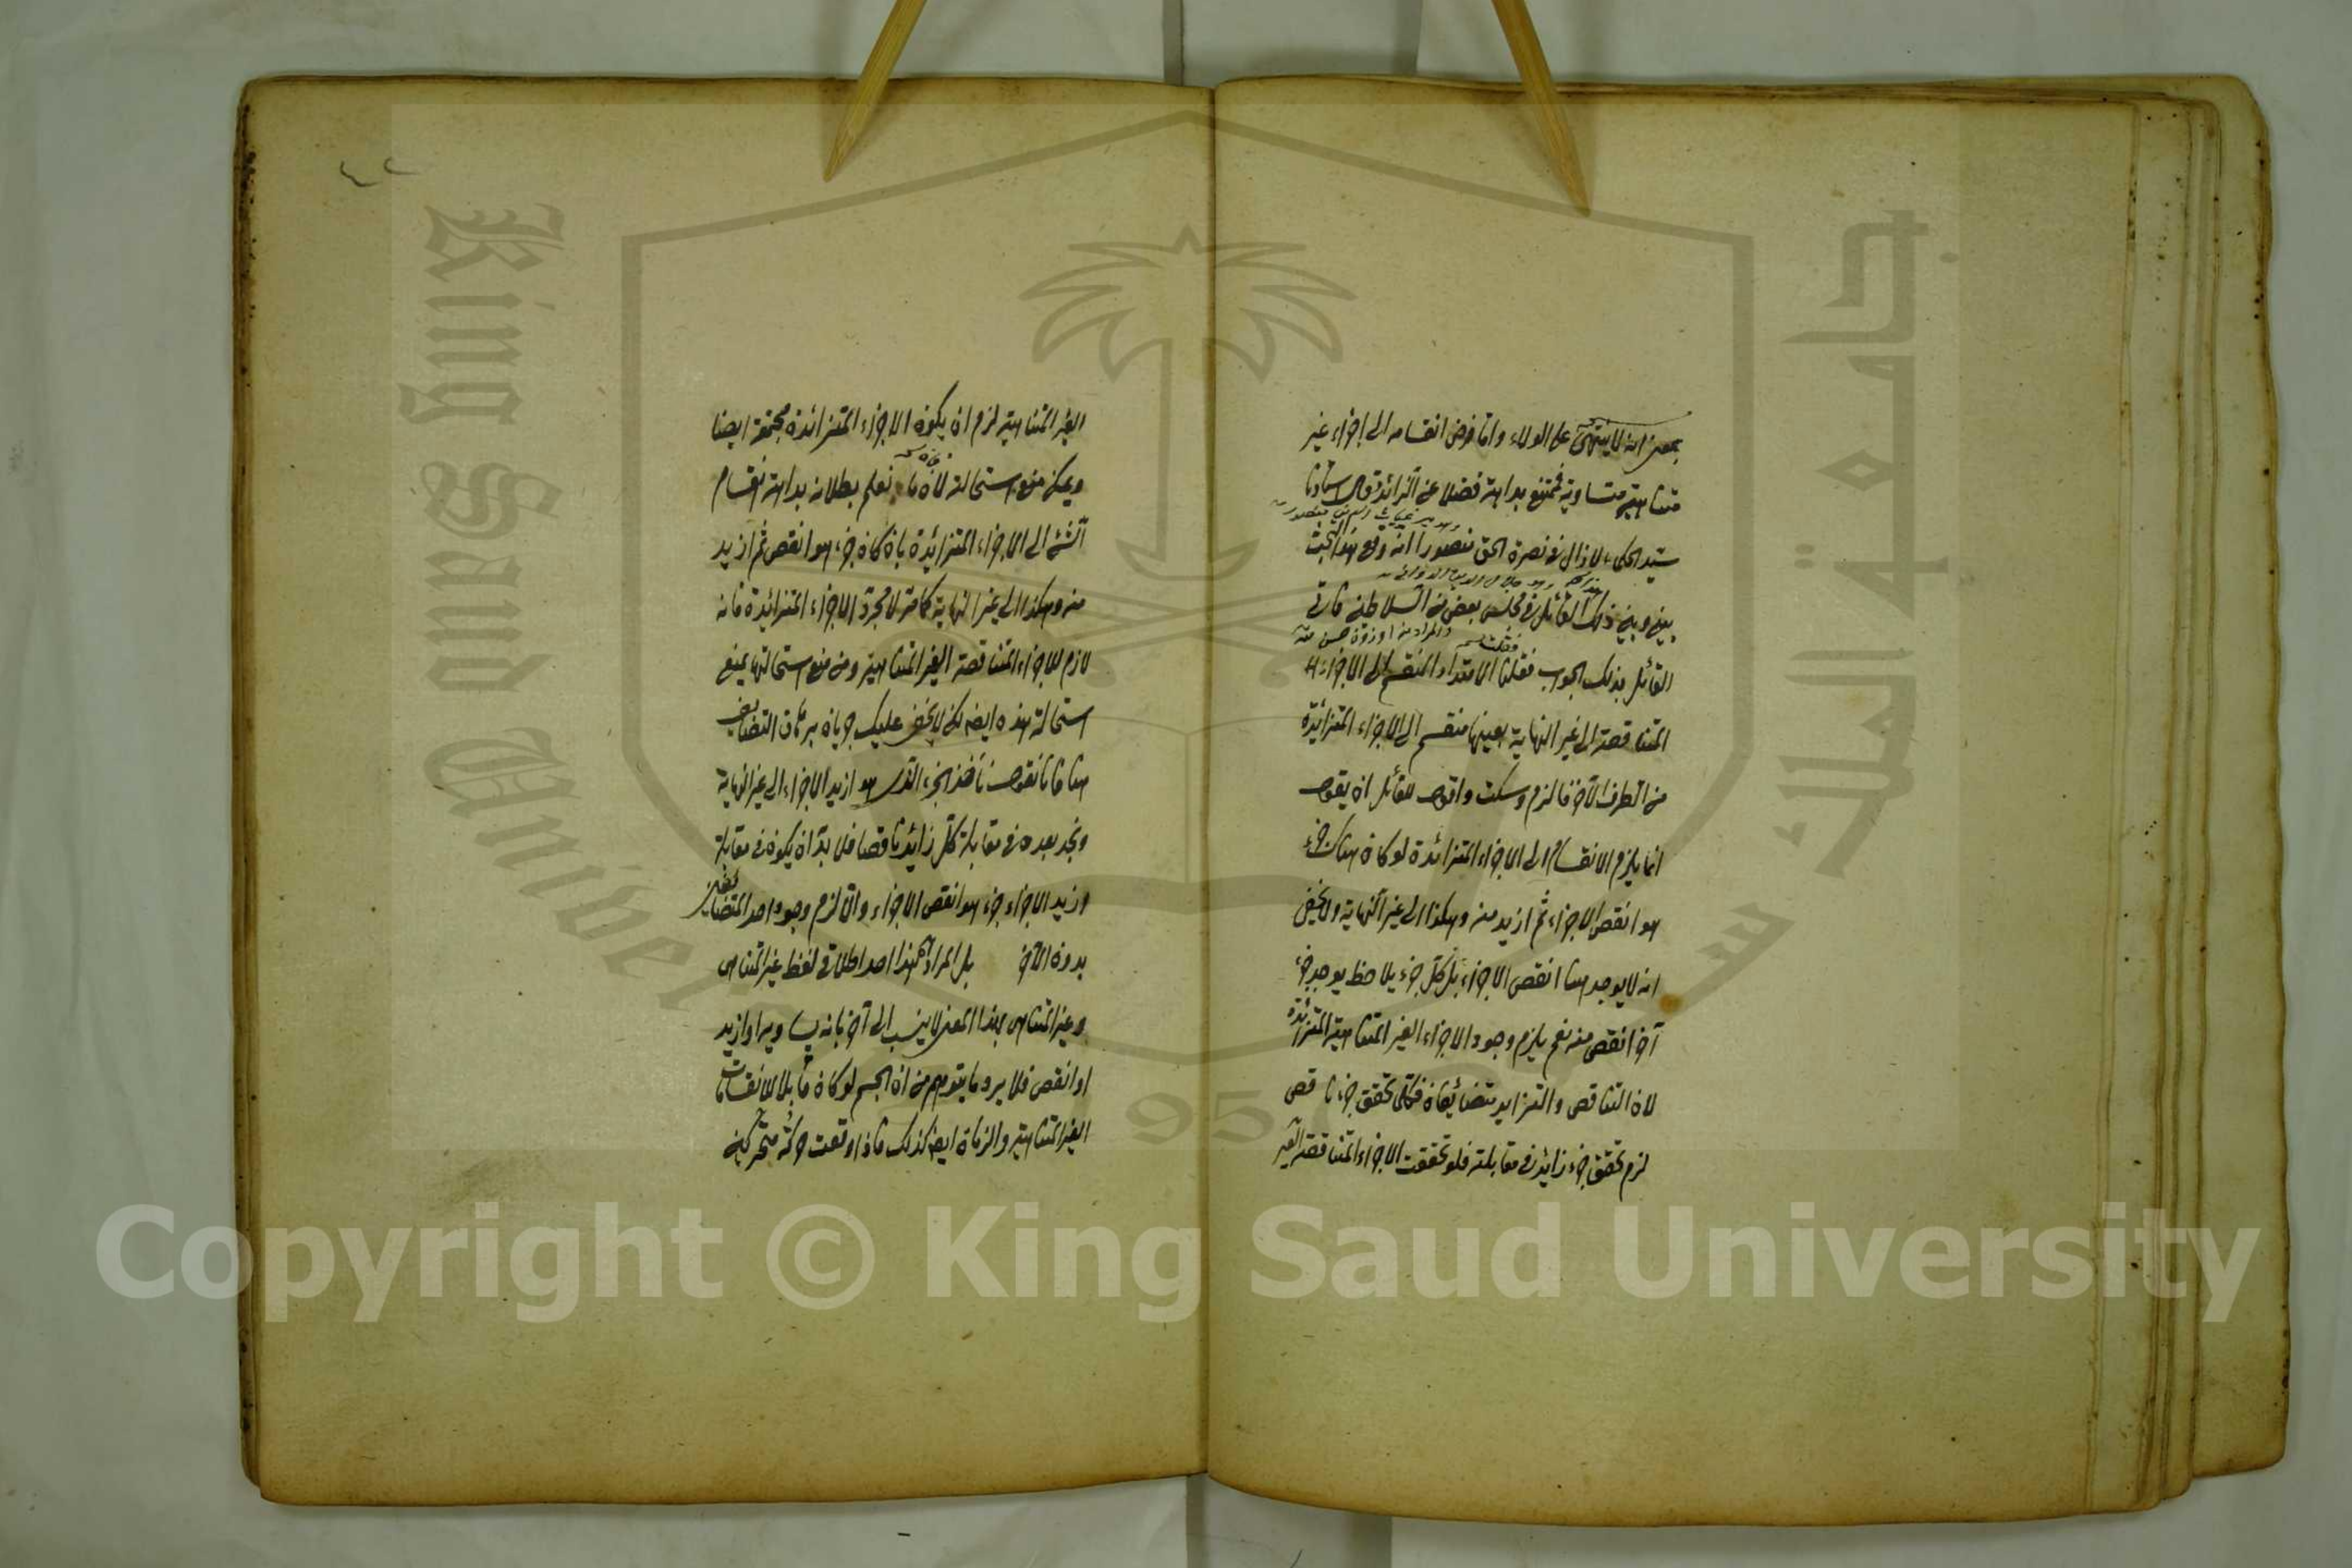 بمعنى انه لا ينتهى على الولاء واما فرض انقسامه الى اجزاء غير
متناهية متساوية فممتنع بداهة فضلا عن الزائدة قال استاذنا
سيد الحكماء لا زال فى نصرة الحق منصورا انه وقع هذا البحث
بينى وبين ذلك القائل فى مجلس بعض من السلاطين
القائل بذلك الجواب فقلنا الامتداد المنقسم الى الاجزاء
المتناقصة الى غير النهاية بعينها منقسم الى الاجزاء المتزائدة
من الطرف الآخر فالزم وسكت واقول للقائل ان يقول
انما يلزم الانقسام الى الاجزاء المتزائدة لو كان هناك جزء
هو انقص الاجزاء ثم ازيد منه وهكذا الى غير النهاية ولا يخفى
انه لا يوجد هنا انقص الاجزاء بل كل جزء يلاحظ يوجد جزء
آخر انقص منه نعم يلزم وجود الاجزاء الغير المتناهية المتزائدة
لان التناقص والتزايد متضائفان فمتى تحقق جزء ناقص
لزم تحقق جزء زايد فى مقابلته فلو تحققت الاجزاء المتناقصة الغير
٤٢
الغير المتناهية لزم ان يكون الاجزاء المتزائدة مجتمعة ايضا
ويمكن منع استحالته لان ما نعلم بطلانه بداهة انقسام
الشئ الى الاجزاء المتزائدة بان كان جزء هو انقص ثم ازيد
منه وهكذا الى غير النهاية كما مر لا مجرد الاجزاء المتزائدة فانه
لازم للاجزاء المتناقصة الغير المتناهية ومن منع استحالتها يمنع
استحالة هذه ايضا لكن لا يخفى عليك جريان برهان التضايف
هنا فانا نقول نأخذ الجزء الذى هو ازيد الاجزاء الى غير النهاية
ونجد بعده فى مقابلة كل زايد ناقصا فلا بد ان يكون فى مقابلة
ازيد الاجزاء جزء هو انقص الاجزاء والا لزم وجود احد المتضايفين
بدون الآخر بل المراد هذا احد اطلاقى لفظ غير المتناهى
وغير المتناهى بهذا المعنى لا ينسب الى آخر بانه يساويه او ازيد
او انقص فلا يرد ما يتوهم من ان الجسم لو كان قابلا للانقسامات
الغير المتناهية والزمان ايضا كذلك فاذا وقعت حركة متحركين
King Saud Univer
جامعة الملك س
1957
Copyright © King Saud University